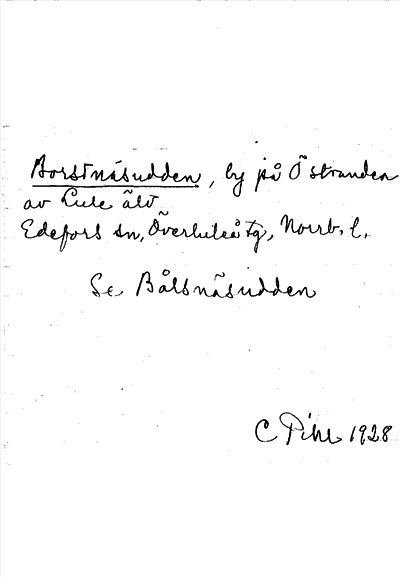 Borstnäsudden, by på Östranden
av Lule älv
Edefors sn, Överluleå tg, Norrb. l.
Se Bålsnäsudden
C Pihl 1928